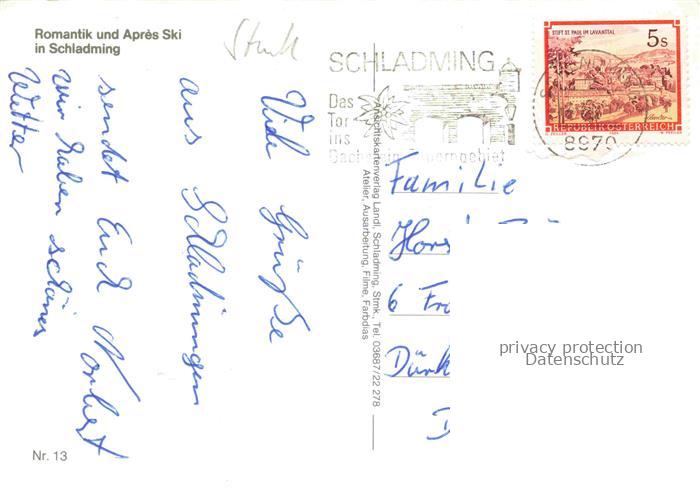 Romantik und Après Ski
in Schladming
Stmk
Viele Grüße
aus Schladmingen
sendet Euch Norbert
Wir haben schönes
Wetter
Nr. 13
Ansichtskartenverlag Landl, Schladming, Stmk., Tel. 03687/22 278
Atelier, Ausarbeitung, Filme, Farbdias
SCHLADMING
Das
Tor
ins
STIFT ST. PAUL IM LAVANTTAL
5s
REPUBLIK ÖSTERREICH
8970
Familie
Hors
6 Fr
Dürk
D
privacy protection
Datenschutz